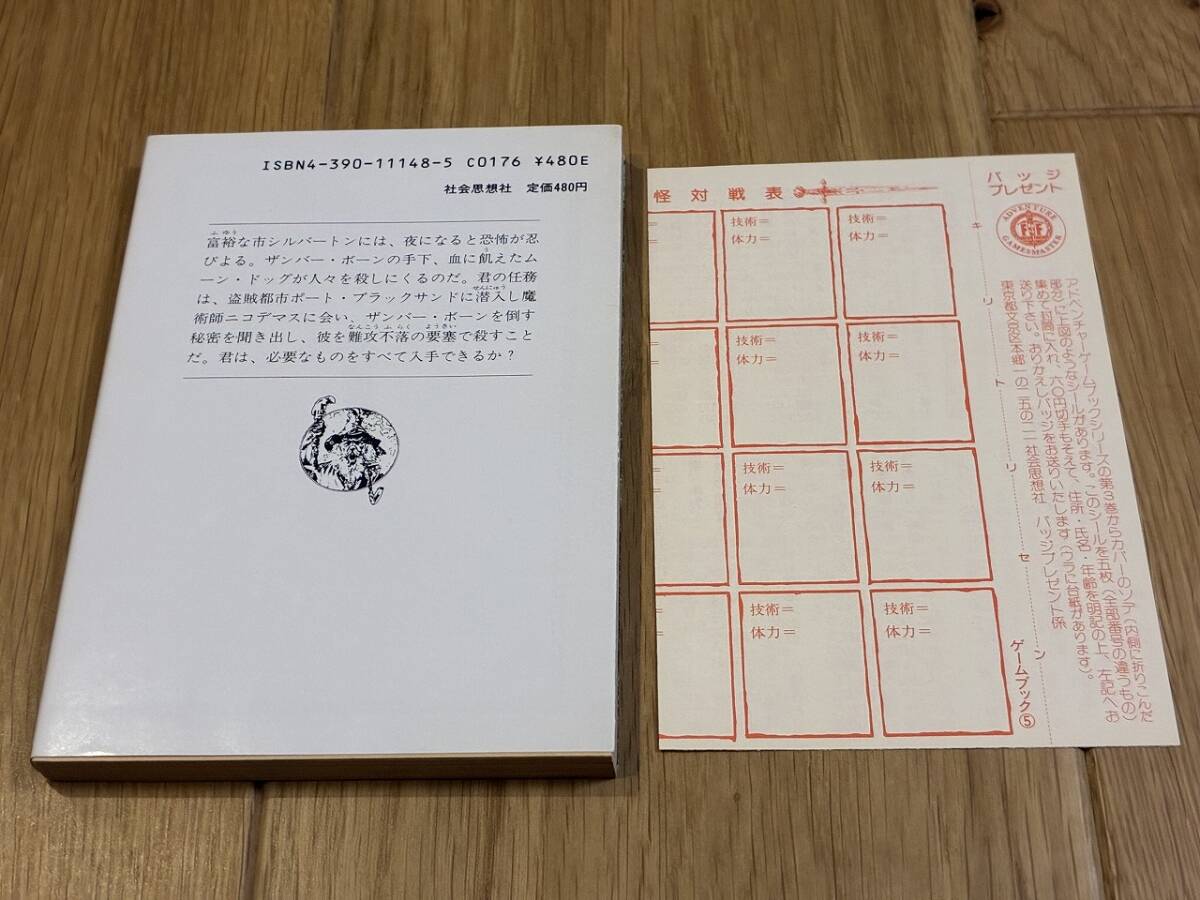 ISBN4-390-11148-5 C0176 ¥480E
社会思想社 定価480円
富裕な市シルバートンには、夜になると恐怖が忍
びよる。ザンバー・ボーンの手下、血に飢えたム
ーン・ドッグが人々を殺しにくるのだ。君の任務
は、盗賊都市ポート・ブラックサンドに潜入し魔
術師ニコデマスに会い、ザンバー・ボーンを倒す
秘密を聞き出し、彼を難攻不落の要塞で殺すこと
だ。君は、必要なものをすべて入手できるか？
怪対戦表
技術＝
体力＝
技術＝
体力＝
技術＝
体力＝
技術＝
体力＝
技術＝
体力＝
技術＝
体力＝
技術＝
体力＝
技術＝
体力＝
バッジ
プレゼント
ADVENTURE
FF
GAMESMASTER
アドベンチャーゲームブックシリーズの第3巻からカバーのソデ（内側に折りこんだ
部分）に上図のようなシールがあります。このシールを五枚（全部番号の違うもの）
集めて封筒に入れ、六〇円切手もそえて、住所・氏名・年齢を明記の上、左記へお
送り下さい。おりかえしバッジをお送りいたします（うらに台紙があります）。
東京都文京区本郷一の二五の二一社会思想社 バッジプレゼント係
キリトリセン
ゲームブック⑤